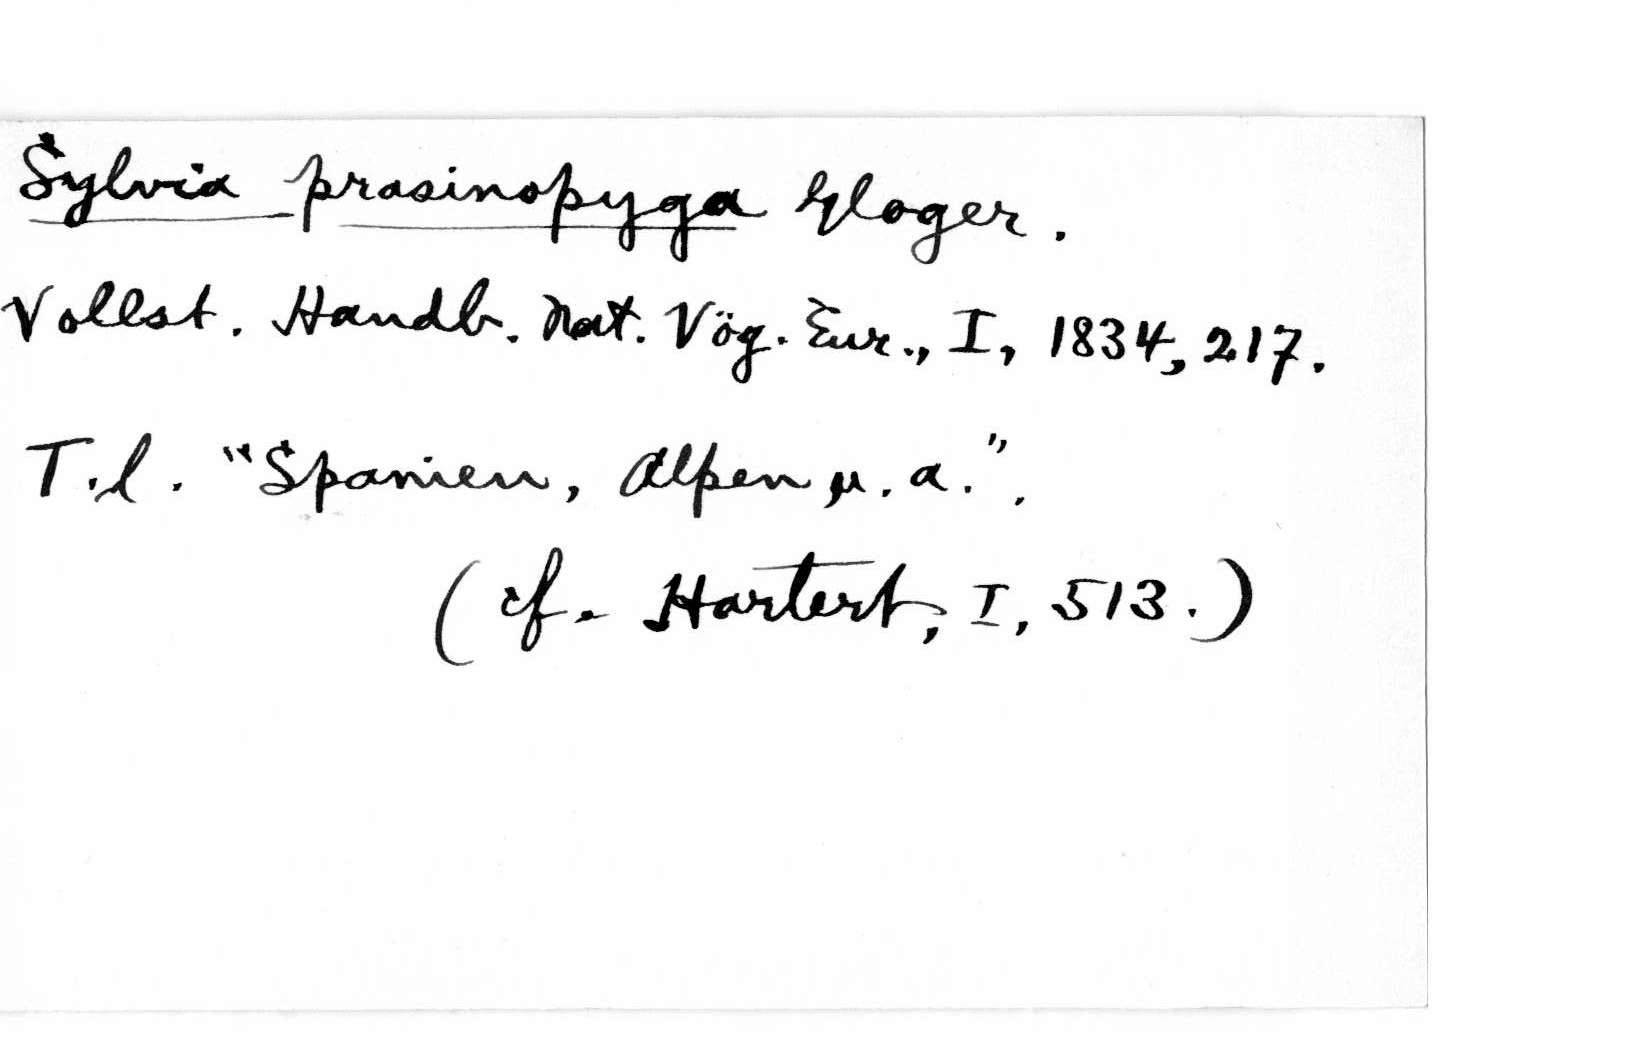 Sylvia prasinopyga Gloger.
Vollst. Handb. Nat. Vög. Eur., I, 1834, 217.
T.l. "Spanien, Alpen u. a.".
(cf. Hartert, I, 513.)